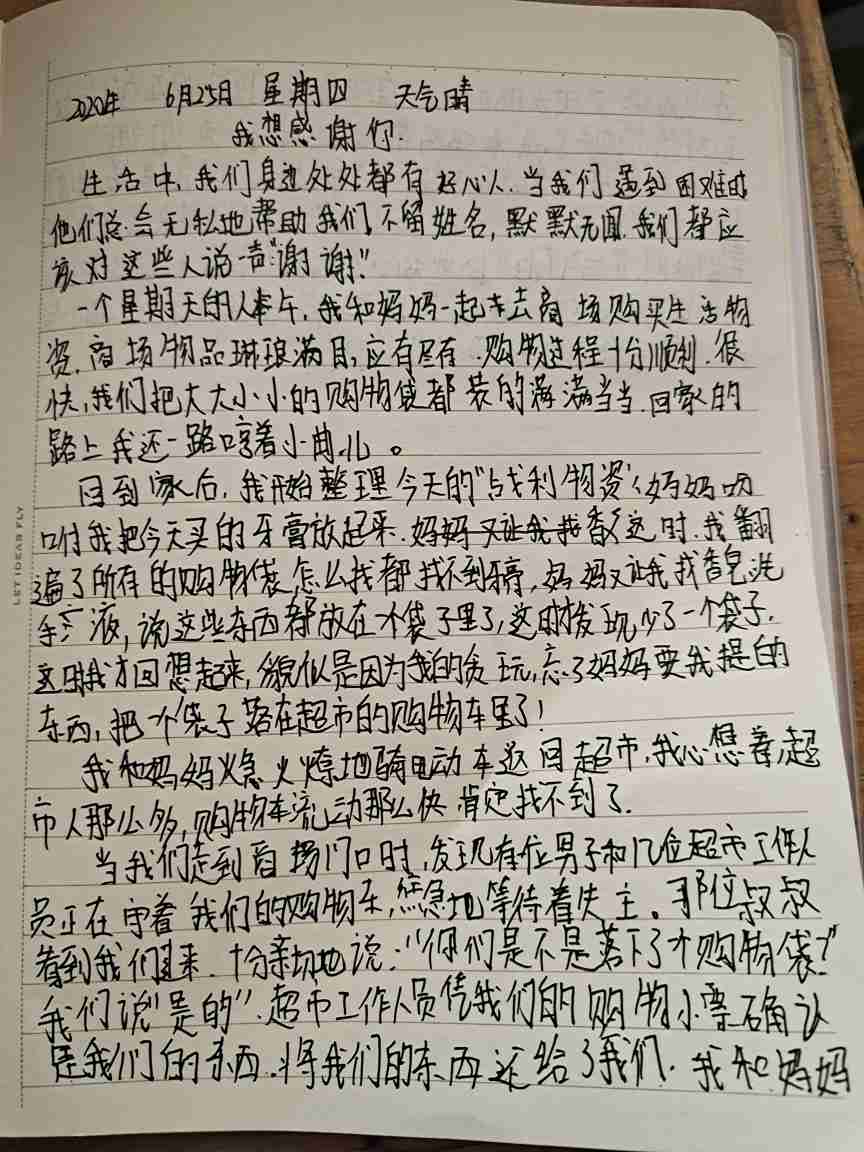 2020年 6月25日 星期四 天气晴
我想感谢你.
生活中,我们身边处处都有好心人.当我们遇到困难时
他们总会无私地帮助我们,不留姓名,默默无闻.我们都应
该对这些人说一声"谢谢".
一个星期天的下午,我和妈妈一起去商场购买生活物
资.商场物品琳琅满目,应有尽有.购物过程十分顺利.很
快,我们把大大小小的购物袋都装的满满当当.回家的
路上我还一路哼着小曲儿。
回到家后,我开始整理今天的"战利物资",妈妈叨
咐我把今天买的牙膏放起来.这时,我翻
遍了所有的购物袋,怎么找都找不到牙膏,妈妈又让我找香皂洗
手液,说这些东西都放在一个袋子里了,这时发现少了一个袋子.
这时我才回想起来,貌似是因为我的贪玩,忘了妈妈要我提的
东西,把一个袋子落在超市的购物车里了!
我和妈妈火急火燎地骑电动车返回超市,我心想着,超
市人那么多,购物车流动那么快,肯定找不到了.
当我们走到商场门口时,发现有位男子和几位超市工作人
员正在守着我们的购物车,焦急地等待着失主。那位叔叔
看到我们赶来.十分亲切地说:"你们是不是落下了个购物袋?"
我们说"是的".超市工作人员凭我们的购物小票确认
是我们的东西.将我们的东西还给了我们.我和妈妈
LET IDEAS FLY